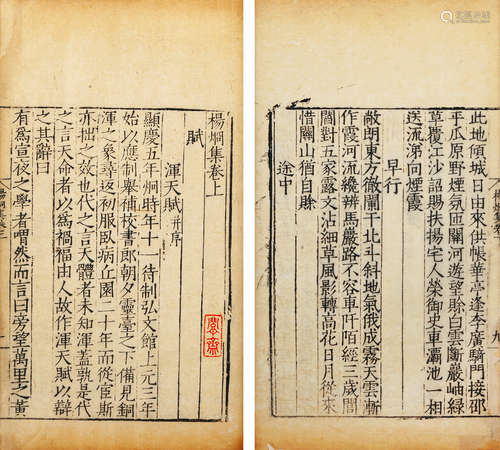 此地傾城日由來供帳華亭逢李廣騎門接邵
平瓜原野煙氛匝關河遊望賒白雲斷巖岫綠
草覆江沙詔賜扶揚宅人榮御史車灞池一相
送流涕向煙霞
早行
敞朗東方徹闌干北斗斜地氣俄成霧天雲漸
作霞河流纔辨馬巖路不容車阡陌經三歲閭
閻對五家露文沾細草風影轉高花日月從來
惜關山猶自賒
途中
九
楊炯集卷上
賦
渾天賦并序
顯慶五年炯時年十一待制弘文館上元三年
始以應制舉補校書郎朝夕靈臺之下備見銅
渾之象尋返初服臥病丘園二十年而從宦斯
亦拙之效也代之言天體者未知渾蓋孰是代
之言天命者以為禍福由人故作渾天賦以辯
之其辭曰
有為宣夜之學者喟然而言曰旁望萬里之黃